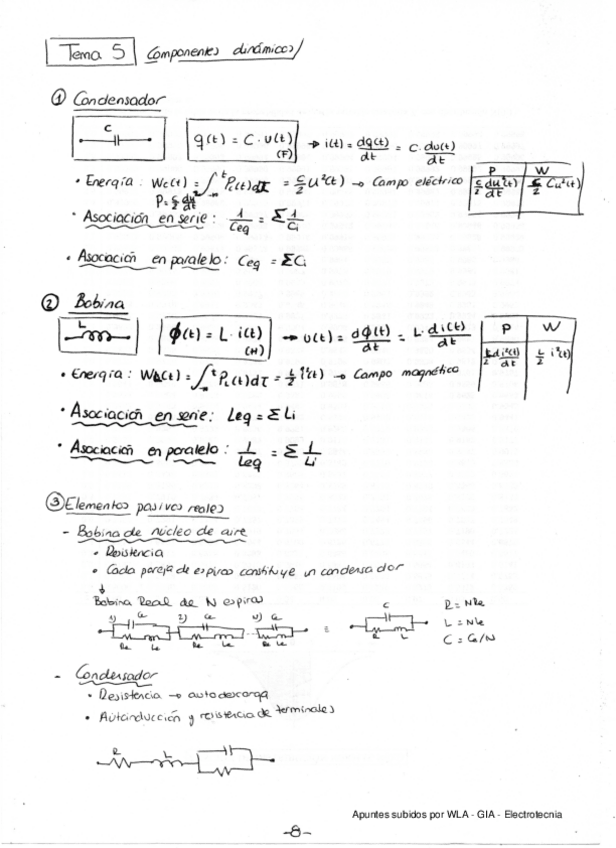 Tema 5 Componentes dinámicos
① Condensador
C
q(t) = C · u(t) (F) → i(t) = dq(t)/dt = C · du(t)/dt
P W
C/2 du²(t)/dt C/2 Cu²(t)
• Energía: Wc(t) = ∫_{-∞}^t Pc(t)dτ = C/2 u²(t) → Campo eléctrico
P = C/2 du²/dt
• Asociación en serie: 1/Ceq = Σ 1/Ci
• Asociación en paralelo: Ceq = ΣCi
② Bobina
L
ϕ(t) = L · i(t) (H) → u(t) = dϕ(t)/dt = L · di(t)/dt
P W
L/2 di²(t)/dt L/2 i²(t)
• Energía: W(t) = ∫_{-∞}^t PL(t)dτ = L/2 i²(t) → Campo magnético
• Asociación en serie: Leq = Σ Li
• Asociación en paralelo: 1/Leq = Σ 1/Li
③ Elementos pasivos reales
- Bobina de núcleo de aire
• Resistencia
• Cada pareja de espiras constituye un condensador
↓
Bobina Real de N espiras
1) Ce 2) Ce N) Ce C
Re Le Re Le Re Le R L
R = NRe
L = NLe
C = Ce/N
- Condensador
• Resistencia → autodescarga
• Autoinducción y resistencia de terminales
R L
Apuntes subidos por WLA - GIA - Electrotecnia
-8-